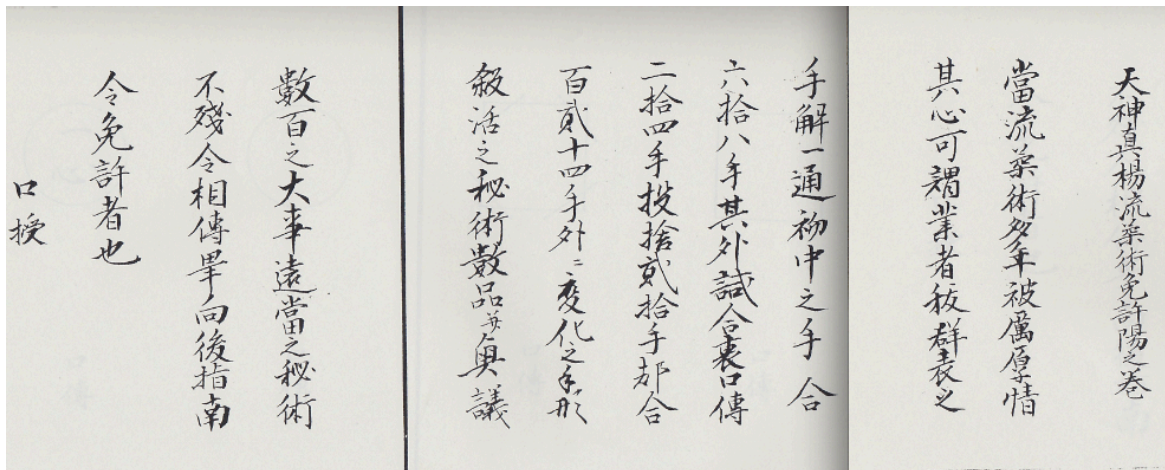 天神真楊流柔術免許陽之巻
當流柔術多年被厲厚情
其心可謂業者秡群表之
手解一通初中之手合
六拾八手其外試合裏口傳
二拾四手投捨貳拾手都合
百貳十四手外ニ変化之手形
殺活之秘術數品並奥議
數百之大事遠當之秘術
不残令相傳畢向後指南
令免許者也
口授